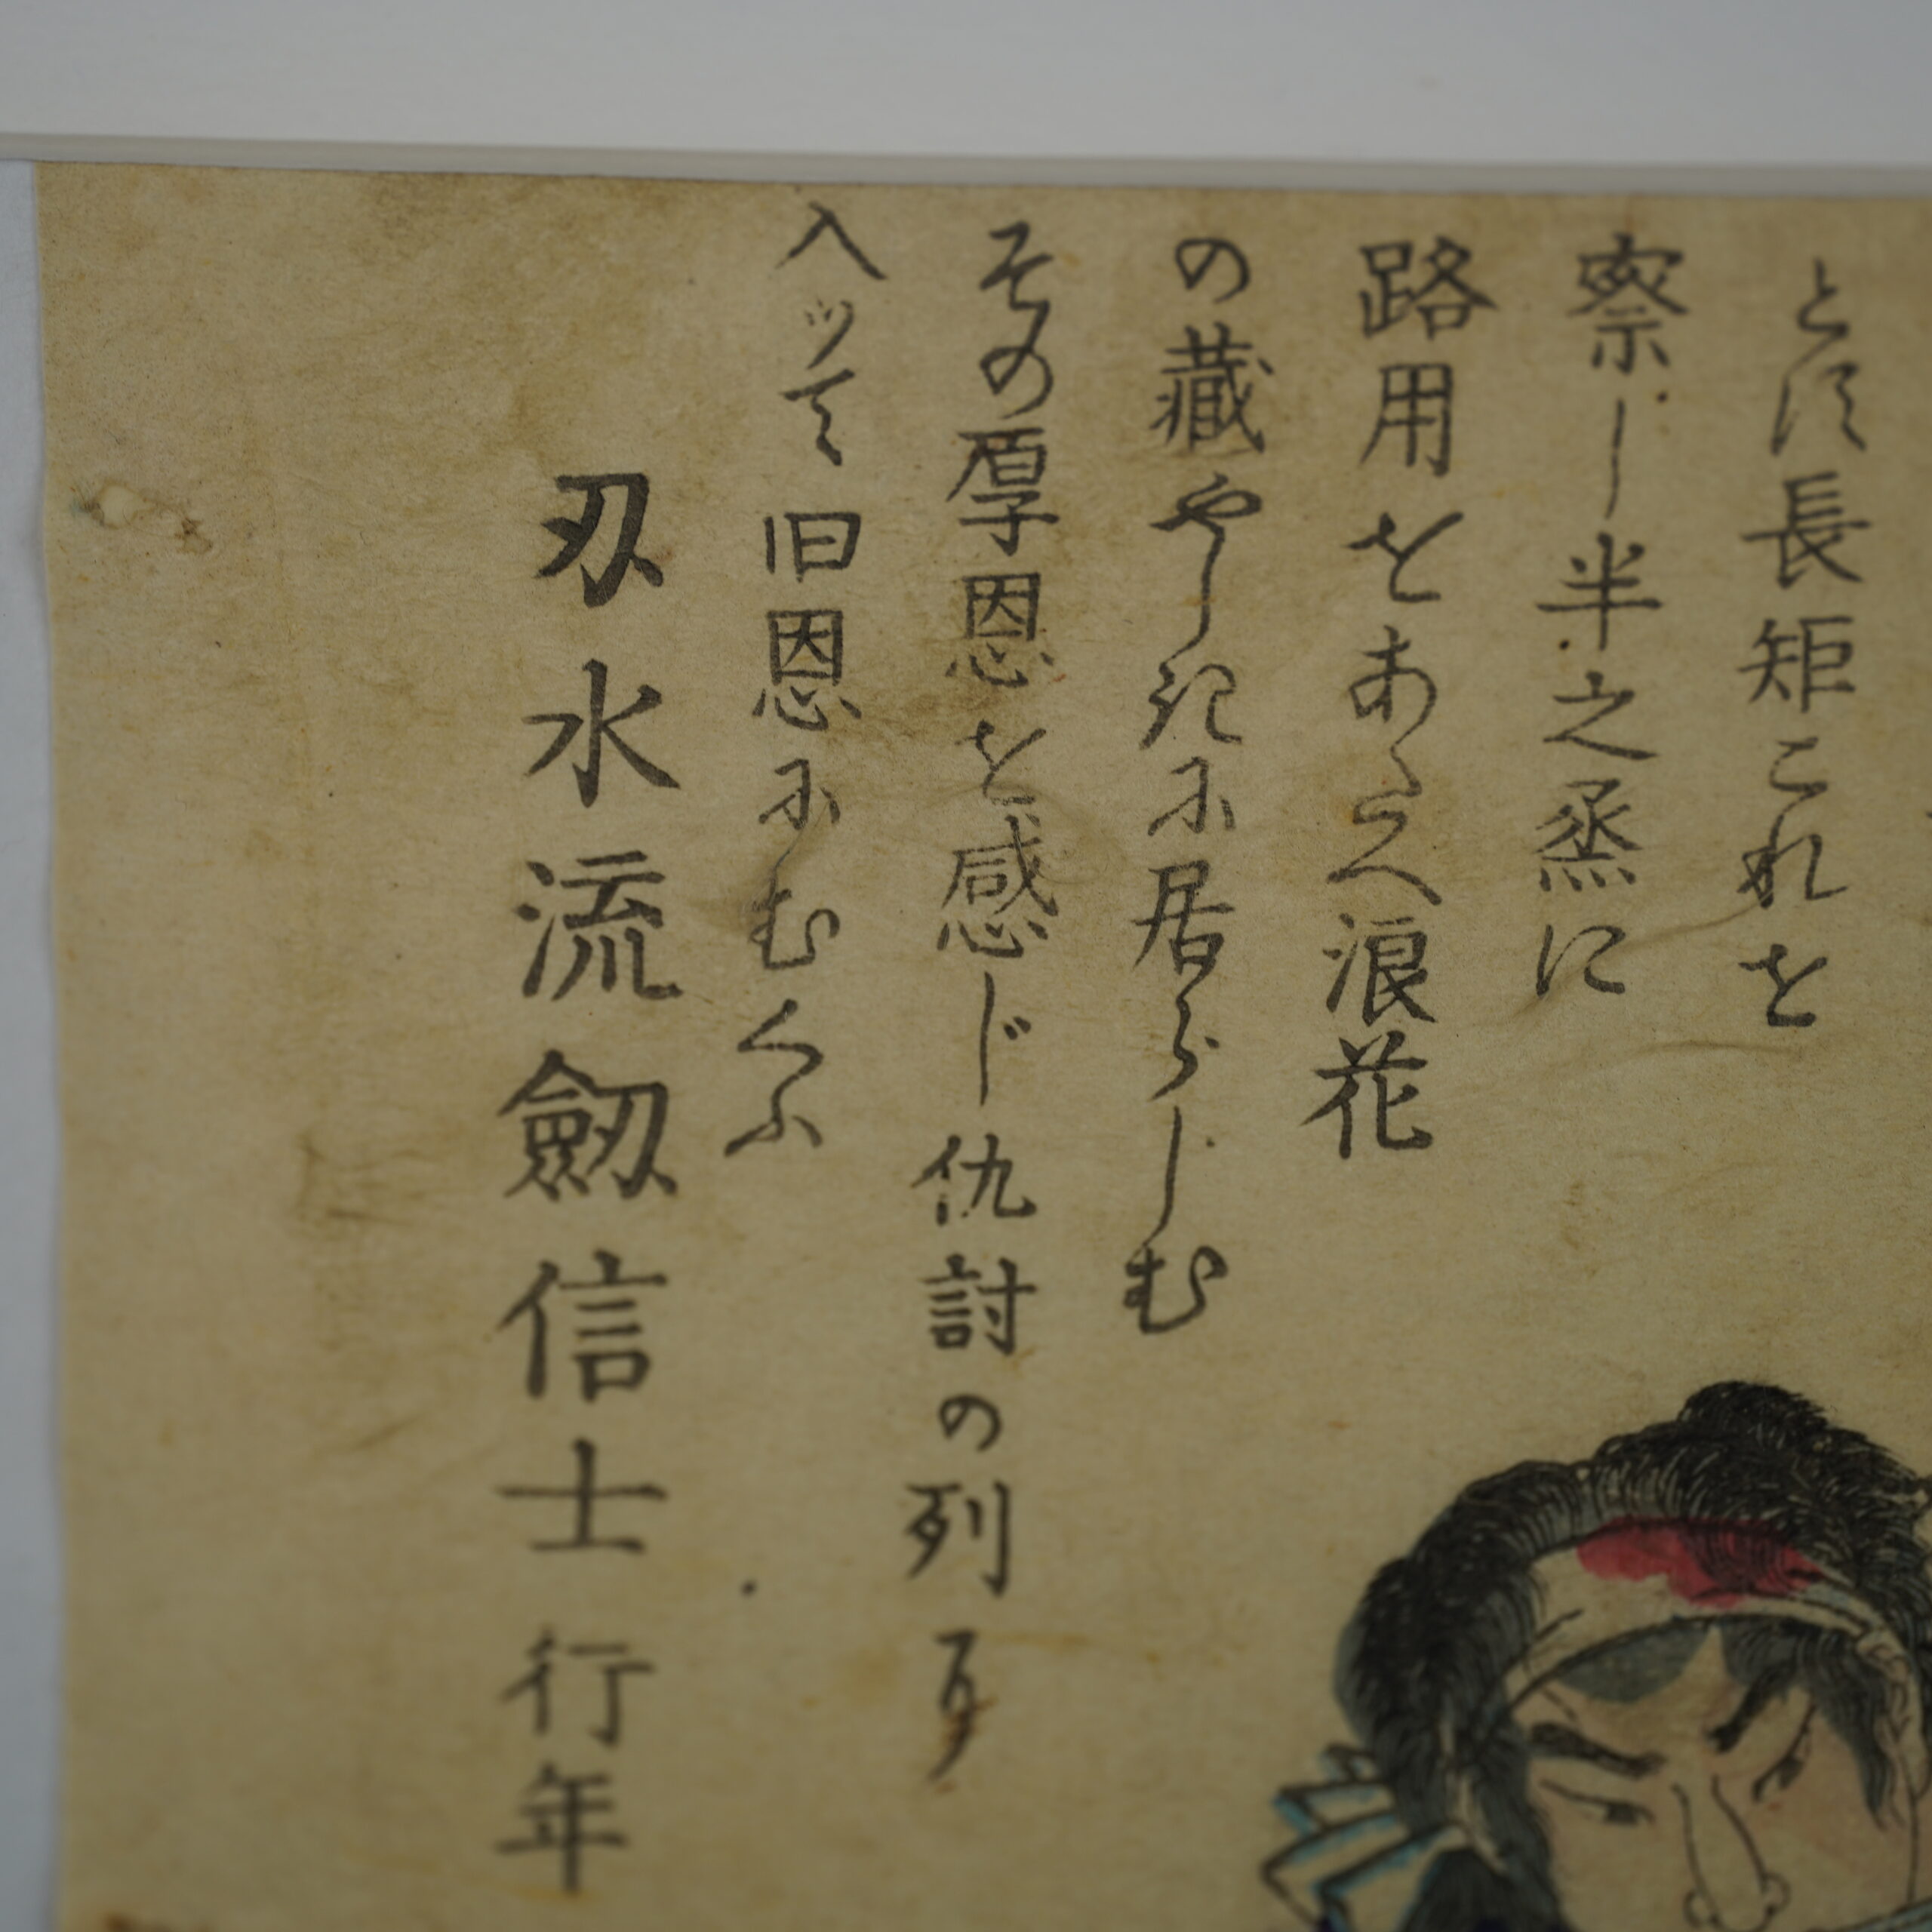 とす長矩これを
察し半之丞に
路用をあたへ浪花
の藏やしきに居らしむ
その厚恩を感じ仇討の列
入ッて旧恩にむくふ
刃水流劔信士 行年